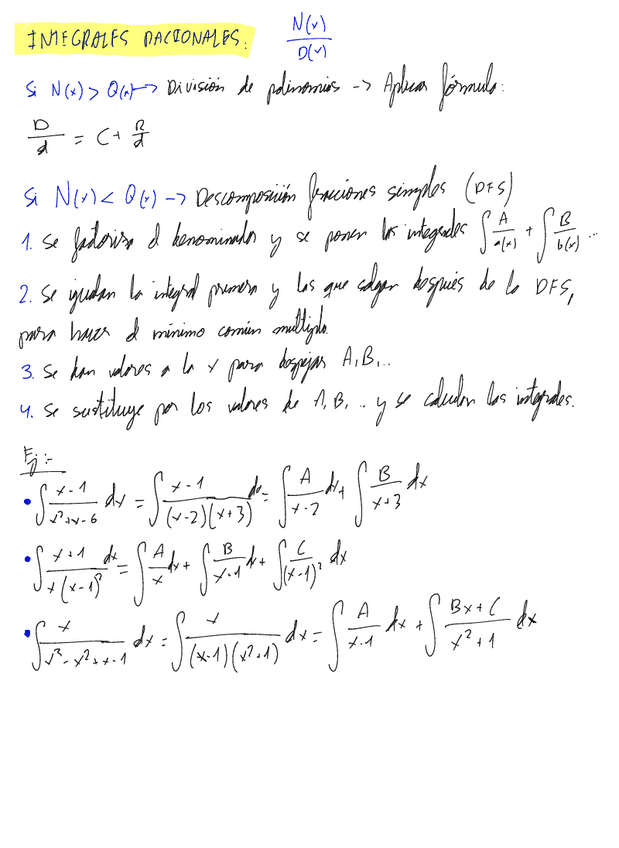 INTEGRALES RACIONALES: N(x)/D(x)
Si N(x) > Q(x) -> División de polinomios -> Aplicar fórmula:
D/d = C + R/d
Si N(x) < Q(x) -> Descomposición fracciones simples (DFS)
1. Se factoriza el denominador y se ponen las integrales ∫ A/a(x) + ∫ B/b(x) ...
2. Se igualan la integral primera y las que salgan después de la DFS,
para hacer el mínimo común multiplo.
3. Se dan valores a la x para despejar A, B, ..
4. Se sustituye por los valores de A, B, .. y se calculan las integrales.
Ej:-
• ∫ x-1/x²+x-6 dx = ∫ x-1/(x-2)(x+3) dx = ∫ A/x-2 dx + ∫ B/x+3 dx
• ∫ x+1/x(x-1)² dx = ∫ A/x dx + ∫ B/x-1 dx + ∫ C/(x-1)² dx
• ∫ x/x³-x²+x-1 dx = ∫ x/(x-1)(x²+1) dx = ∫ A/x-1 dx + ∫ Bx+C/x²+1 dx